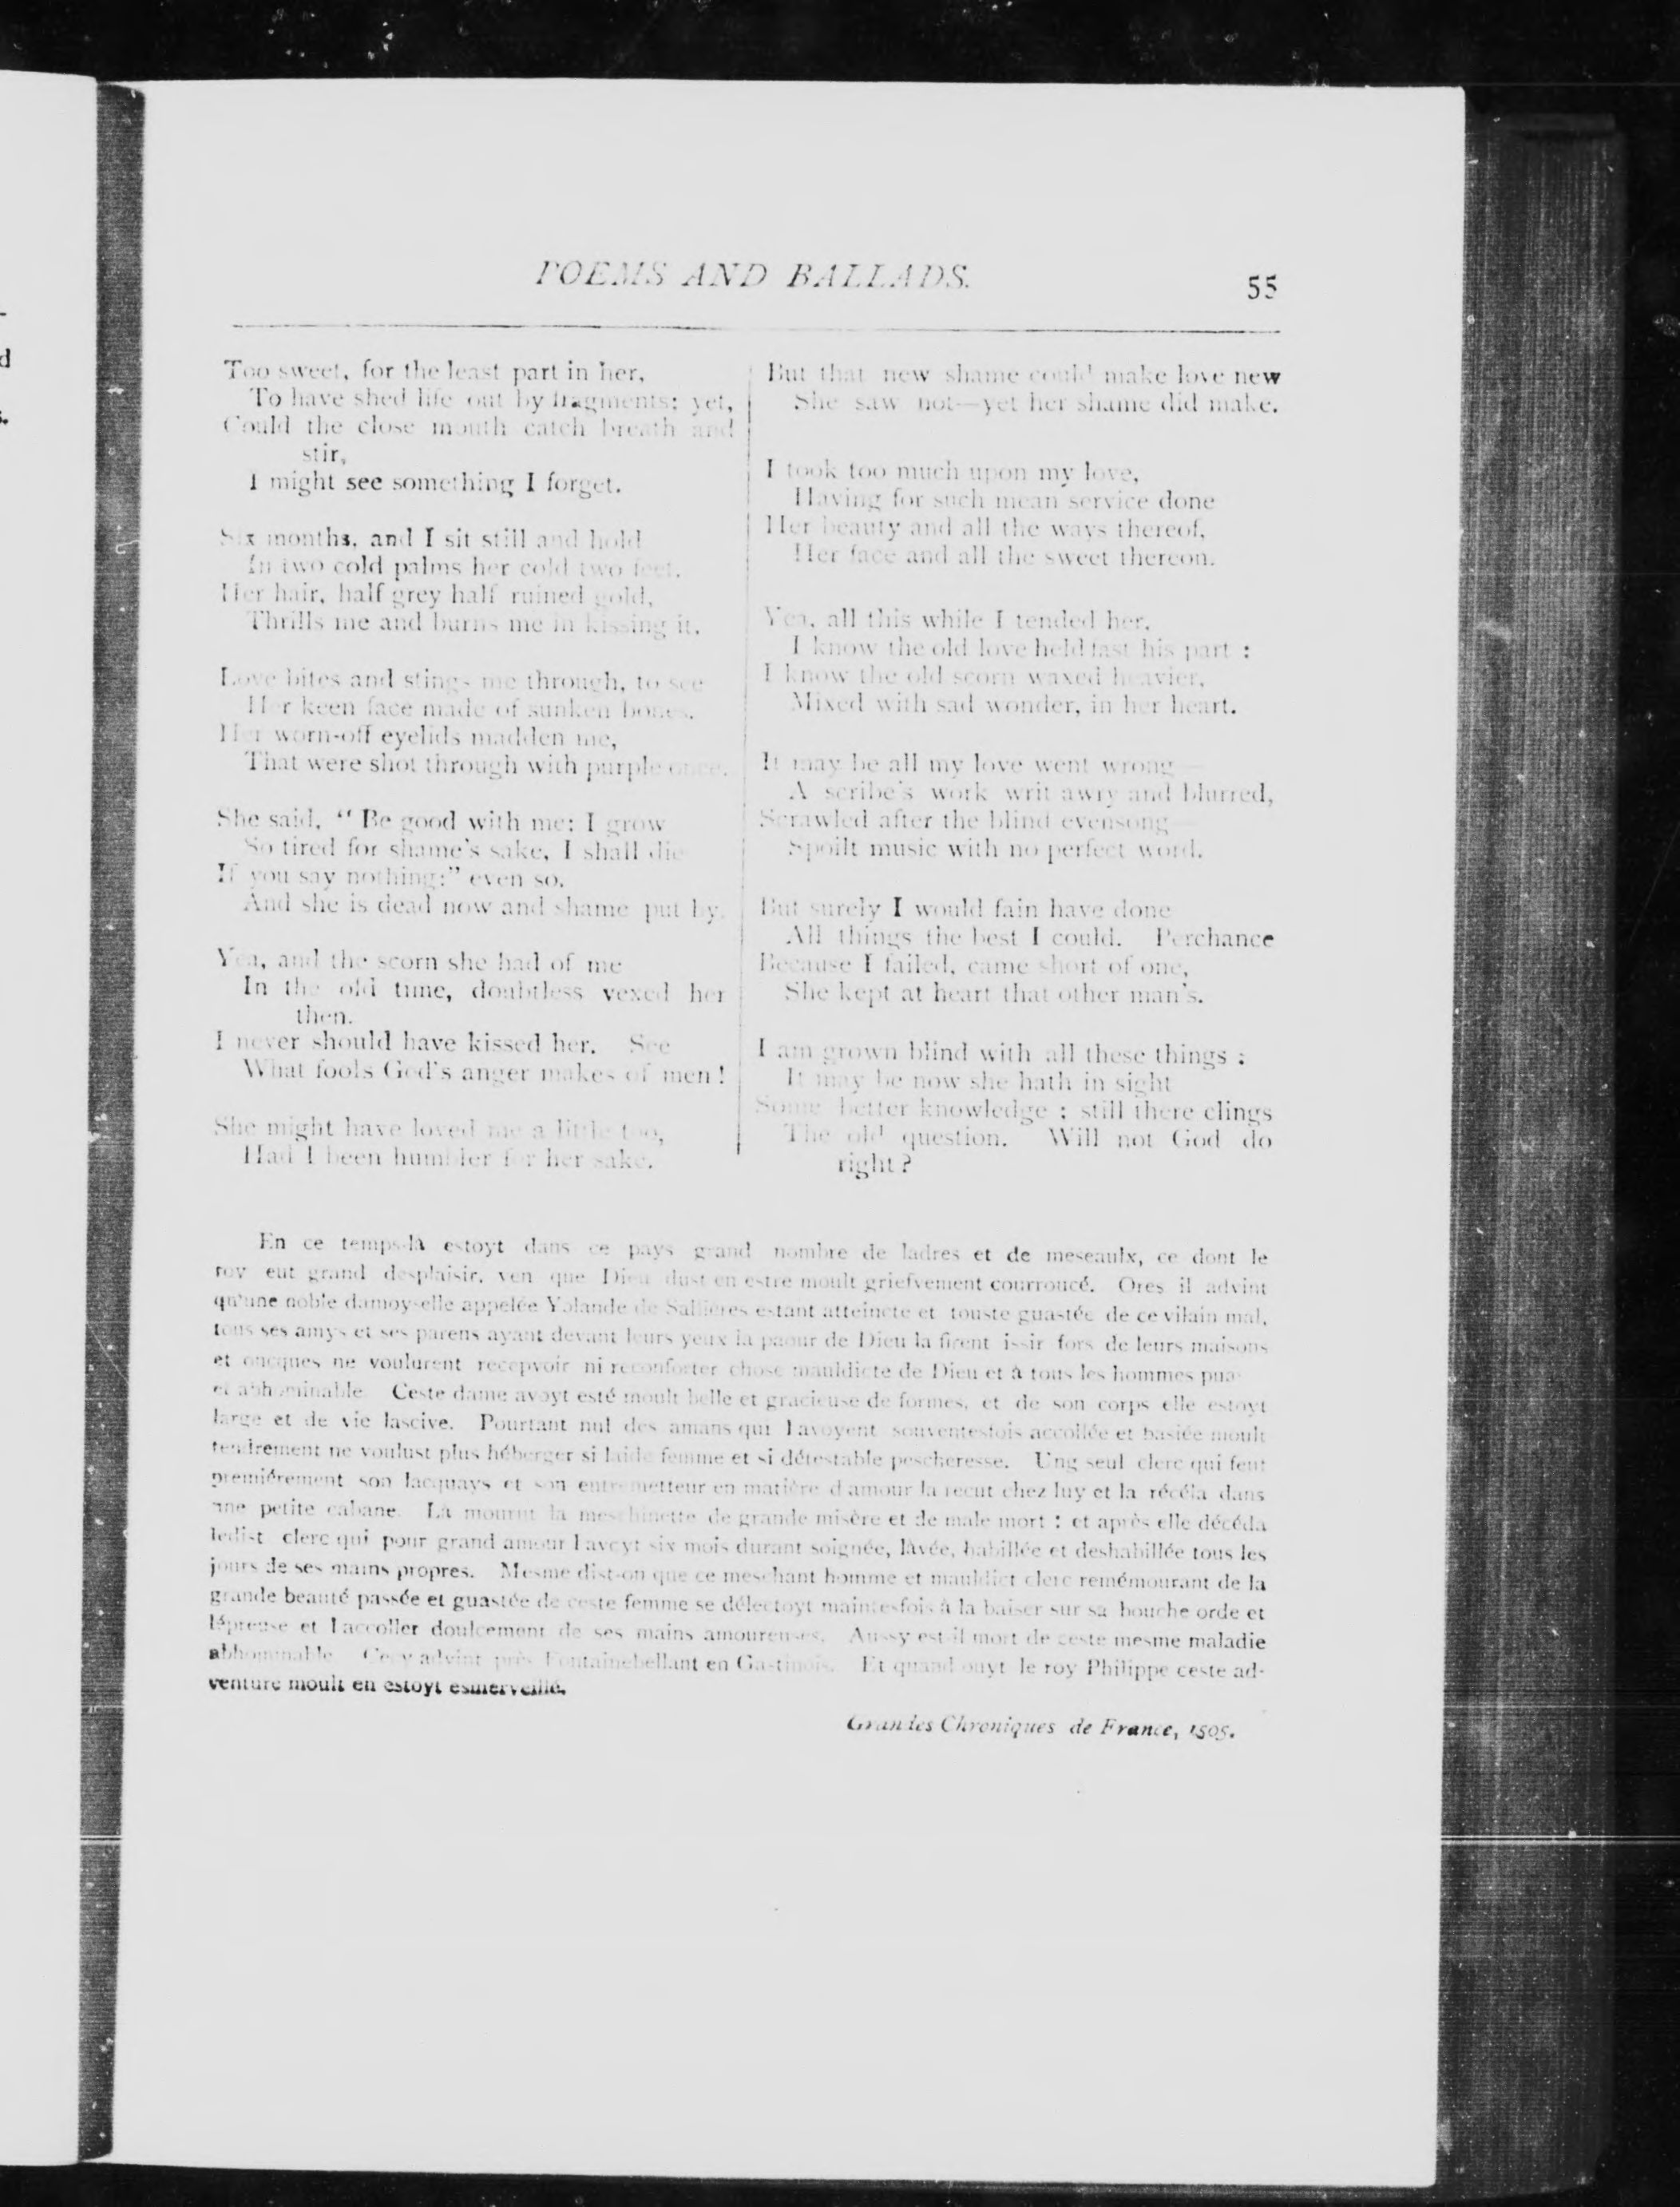 POEMS AND BALLADS.
55
Too sweet, for the least part in her,
To have shed life out by fragments; yet,
Could the close mouth catch breath and
stir,
I might see something I forget.
Six months, and I sit still and hold
In two cold palms her cold two feet.
Her hair, half grey half ruined gold,
Thrills me and burns me in kissing it.
Love bites and stings me through, to see
Her keen face made of sunken bones.
Her worn-off eyelids madden me,
That were shot through with purple once.
She said, “Be good with me; I grow
So tired for shame's sake, I shall die
If you say nothing;” even so.
And she is dead now and shame put by.
Yea, and the scorn she had of me
In the old time, doubtless vexed her
then.
I never should have kissed her. See
What fools God's anger makes of men!
She might have loved me a little too,
Had I been humbler for her sake.
But that new shame could make love new
She saw not—yet her shame did make.
I took too much upon my love,
Having for such mean service done
Her beauty and all the ways thereof,
Her face and all the sweet thereon.
Yea, all this while I tended her,
I know the old love held fast his part :
I know the old scorn waxed heavier,
Mixed with sad wonder, in her heart.
It may be all my love went wrong—
A scribe's work writ awry and blurred,
Scrawled after the blind evensong—
Spoilt music with no perfect word.
But surely I would fain have done
All things the best I could. Perchance
Because I failed, came short of one,
She kept at heart that other man's.
I am grown blind with all these things :
It may be now she hath in sight
Some better knowledge ; still there clings
The old question. Will not God do
right?
En ce temps-là estoyt dans ce pays grand nombre de ladres et de meseaulx, ce dont le
roy eut grand desplaisir, veu que Dieu dust en estre moult griefvement courroucé. Ores il advint
qu'une noble damoyselle appelée Yolande de Sallières estant atteincte et touste guastée de ce vilain mal,
tous ses amys et ses parens ayant devant leurs yeux la paour de Dieu la firent issir fors de leurs maisons
et oncques ne voulurent recepvoir ni reconforter chose mauldicte de Dieu et à tous les hommes pua-
et abhominable. Ceste dame avoyt esté moult belle et gracieuse de formes, et de son corps elle estoyt
large et de vie lascive. Pourtant nul des amans qui l'avoyent souventesfois accollée et baisée moult
tendrement ne voulust plus héberger si laide femme et si détestable pescheresse. Ung seul clerc qui feut
premiérement son lacquays et son entremetteur en matière d'amour la reçut chez luy et la récéla dans
une petite cabane. Là mourut la meschinette de grande misère et de male mort : et après elle décéda
ledist clerc qui pour grand amour l'avoyt six mois durant soignée, lavée, habillée et deshabillée tous les
jours de ses mains propres. Mesme dist-on que ce meschant homme et mauldict clerc remémourant de la
grande beauté passée et guastée de ceste femme se délectoyt maintesfois à la baiser sur sa bouche orde et
lépreuse et l'accoller doulcement de ses mains amoureuses. Aussy est-il mort de ceste mesme maladie
abhominable. Cecy advint près Fontainebellant en Gastinois. Et quand ouyt le roy Philippe ceste ad-
venture moult en estoyt esmerveillé.
Grandes Chroniques de France, 1505.